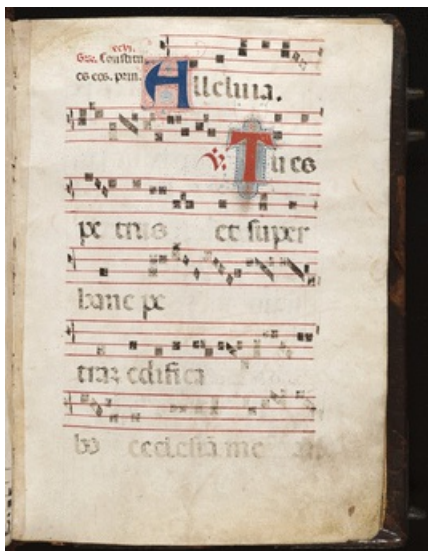 xcvi.
Gr. Constitu
es eos. prin.
Alleluia.
℣. Tu es
pe trus et super
hanc pe
tram edifica
bo ecclesiā me